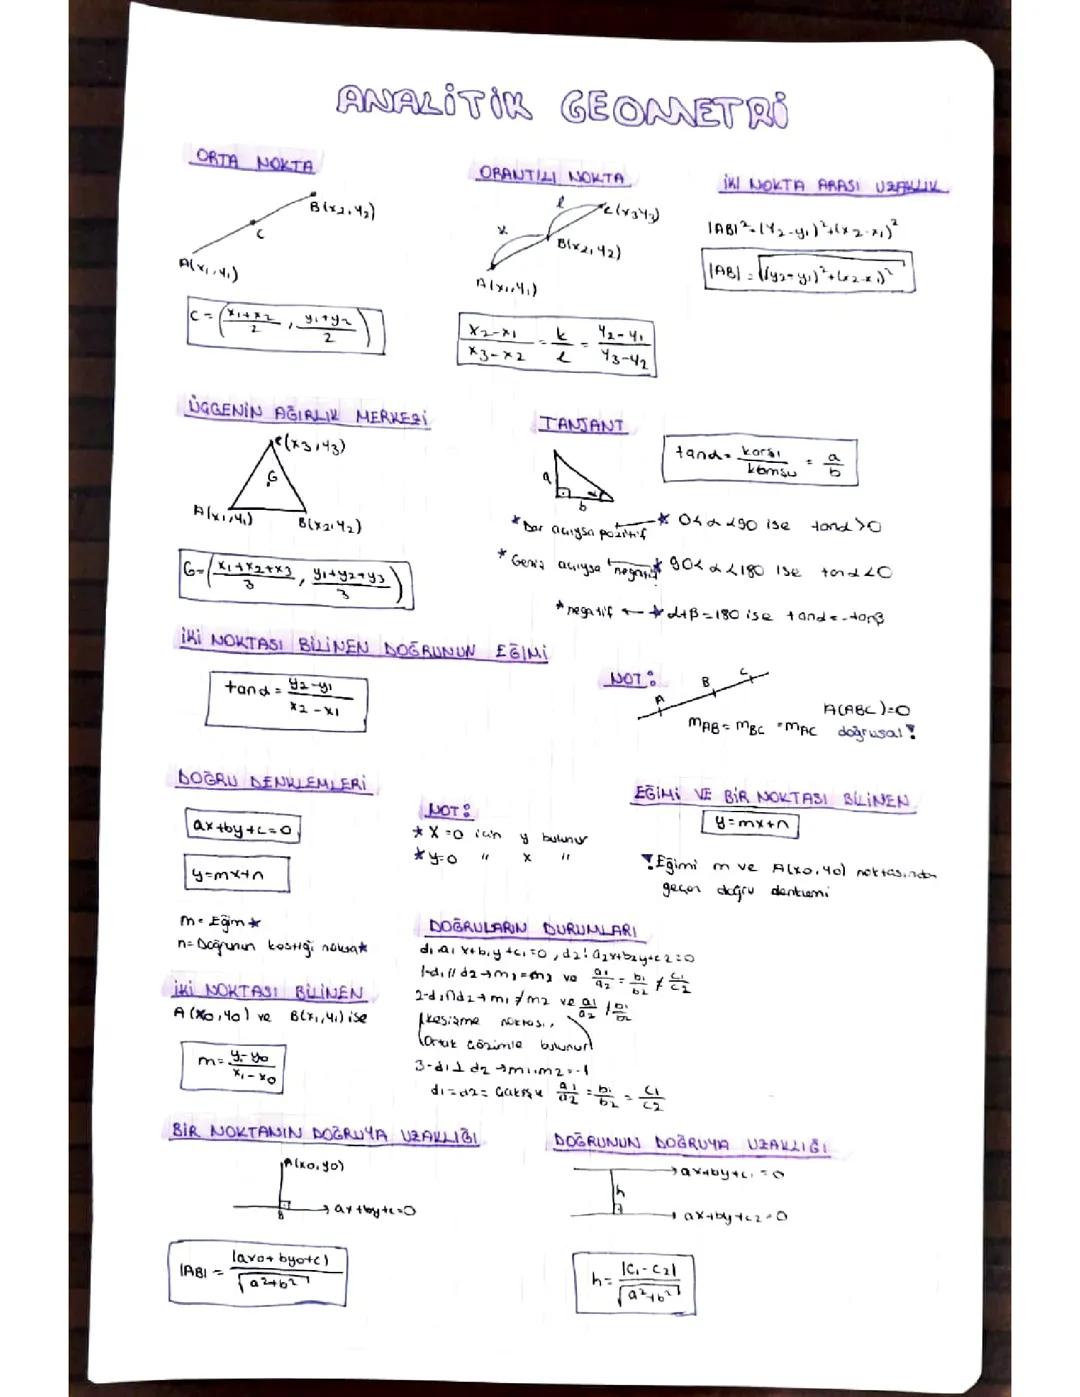 ANALİTİK GEOMETRİ
ORTA NOKTA
B(x2,y2)
C
A(x1,y1)
C = (x1+x2/2, y1+y2/2)
ORANTILI NOKTA
l
C(x3,y3)
k
B(x2,y2)
A(x1,y1)
x2-x1/x3-x2 = k/l = y2-y1/y3-y2
İKİ NOKTA ARASI UZAKLIK
|AB|²=(y2-y1)²+(x2-x1)²
|AB| = √(y2-y1)²+(x2-x1)²
ÜÇGENİN AĞIRLIK MERKEZİ
C(x3,y3)
G
A(x1,y1)
B(x2,y2)
G=(x1+x2+x3/3, y1+y2+y3/3)
TANJANT
a
α
b
tanα = karşı/komşu = a/b
*Dar açıysa pozitif * 0<α<90 ise tanα>0
*Geniş açıysa negatif * 90<α<180 ise tanα<0
*negatif ← * α+β=180 ise tanα=-tanβ
İKİ NOKTASI BİLİNEN DOĞRUNUN EĞİMİ
tanα = y2-y1/x2-x1
NOT:
A
B
C
A(ABC)=0
mAB = mBC = mAC doğrusal!
DOĞRU DENKLEMLERİ
ax+by+c=0
y=mx+n
m = Eğim*
n=Doğrunun kestiği nokta*
NOT:
* X=0 için y bulunur
* y=0 " x "
EĞİMİ VE BİR NOKTASI BİLİNEN
y=mx+n
!Eğimi m ve A(x0,y0) noktasından
geçen doğru denklemi
İKİ NOKTASI BİLİNEN
A(x0,y0) ve B(x1,y1) ise
m = y1-y0/x1-x0
DOĞRULARIN DURUMLARI
d1:a1x+b1y+c1=0, d2:a2x+b2y+c2=0
1-d1//d2→m1=m2 ve a1/a2 = b1/b2 ≠ c1/c2
2-d1∩d2→m1≠m2 ve a1/a2 ≠ b1/b2
(kesişme noktası,
(Ortak çözümle bulunur)
3-d1⊥d2→m1.m2=-1
d1=d2= Çakışık a1/a2 = b1/b2 = c1/c2
BİR NOKTANIN DOĞRUYA UZAKLIĞI
A(x0,y0)
B
ax+by+c=0
|AB| = |ax0+by0+c|/√a²+b²
DOĞRUNUN DOĞRUYA UZAKLIĞI
ax+by+c1=0
h
ax+by+c2=0
h = |c1-c2|/√a²+b²